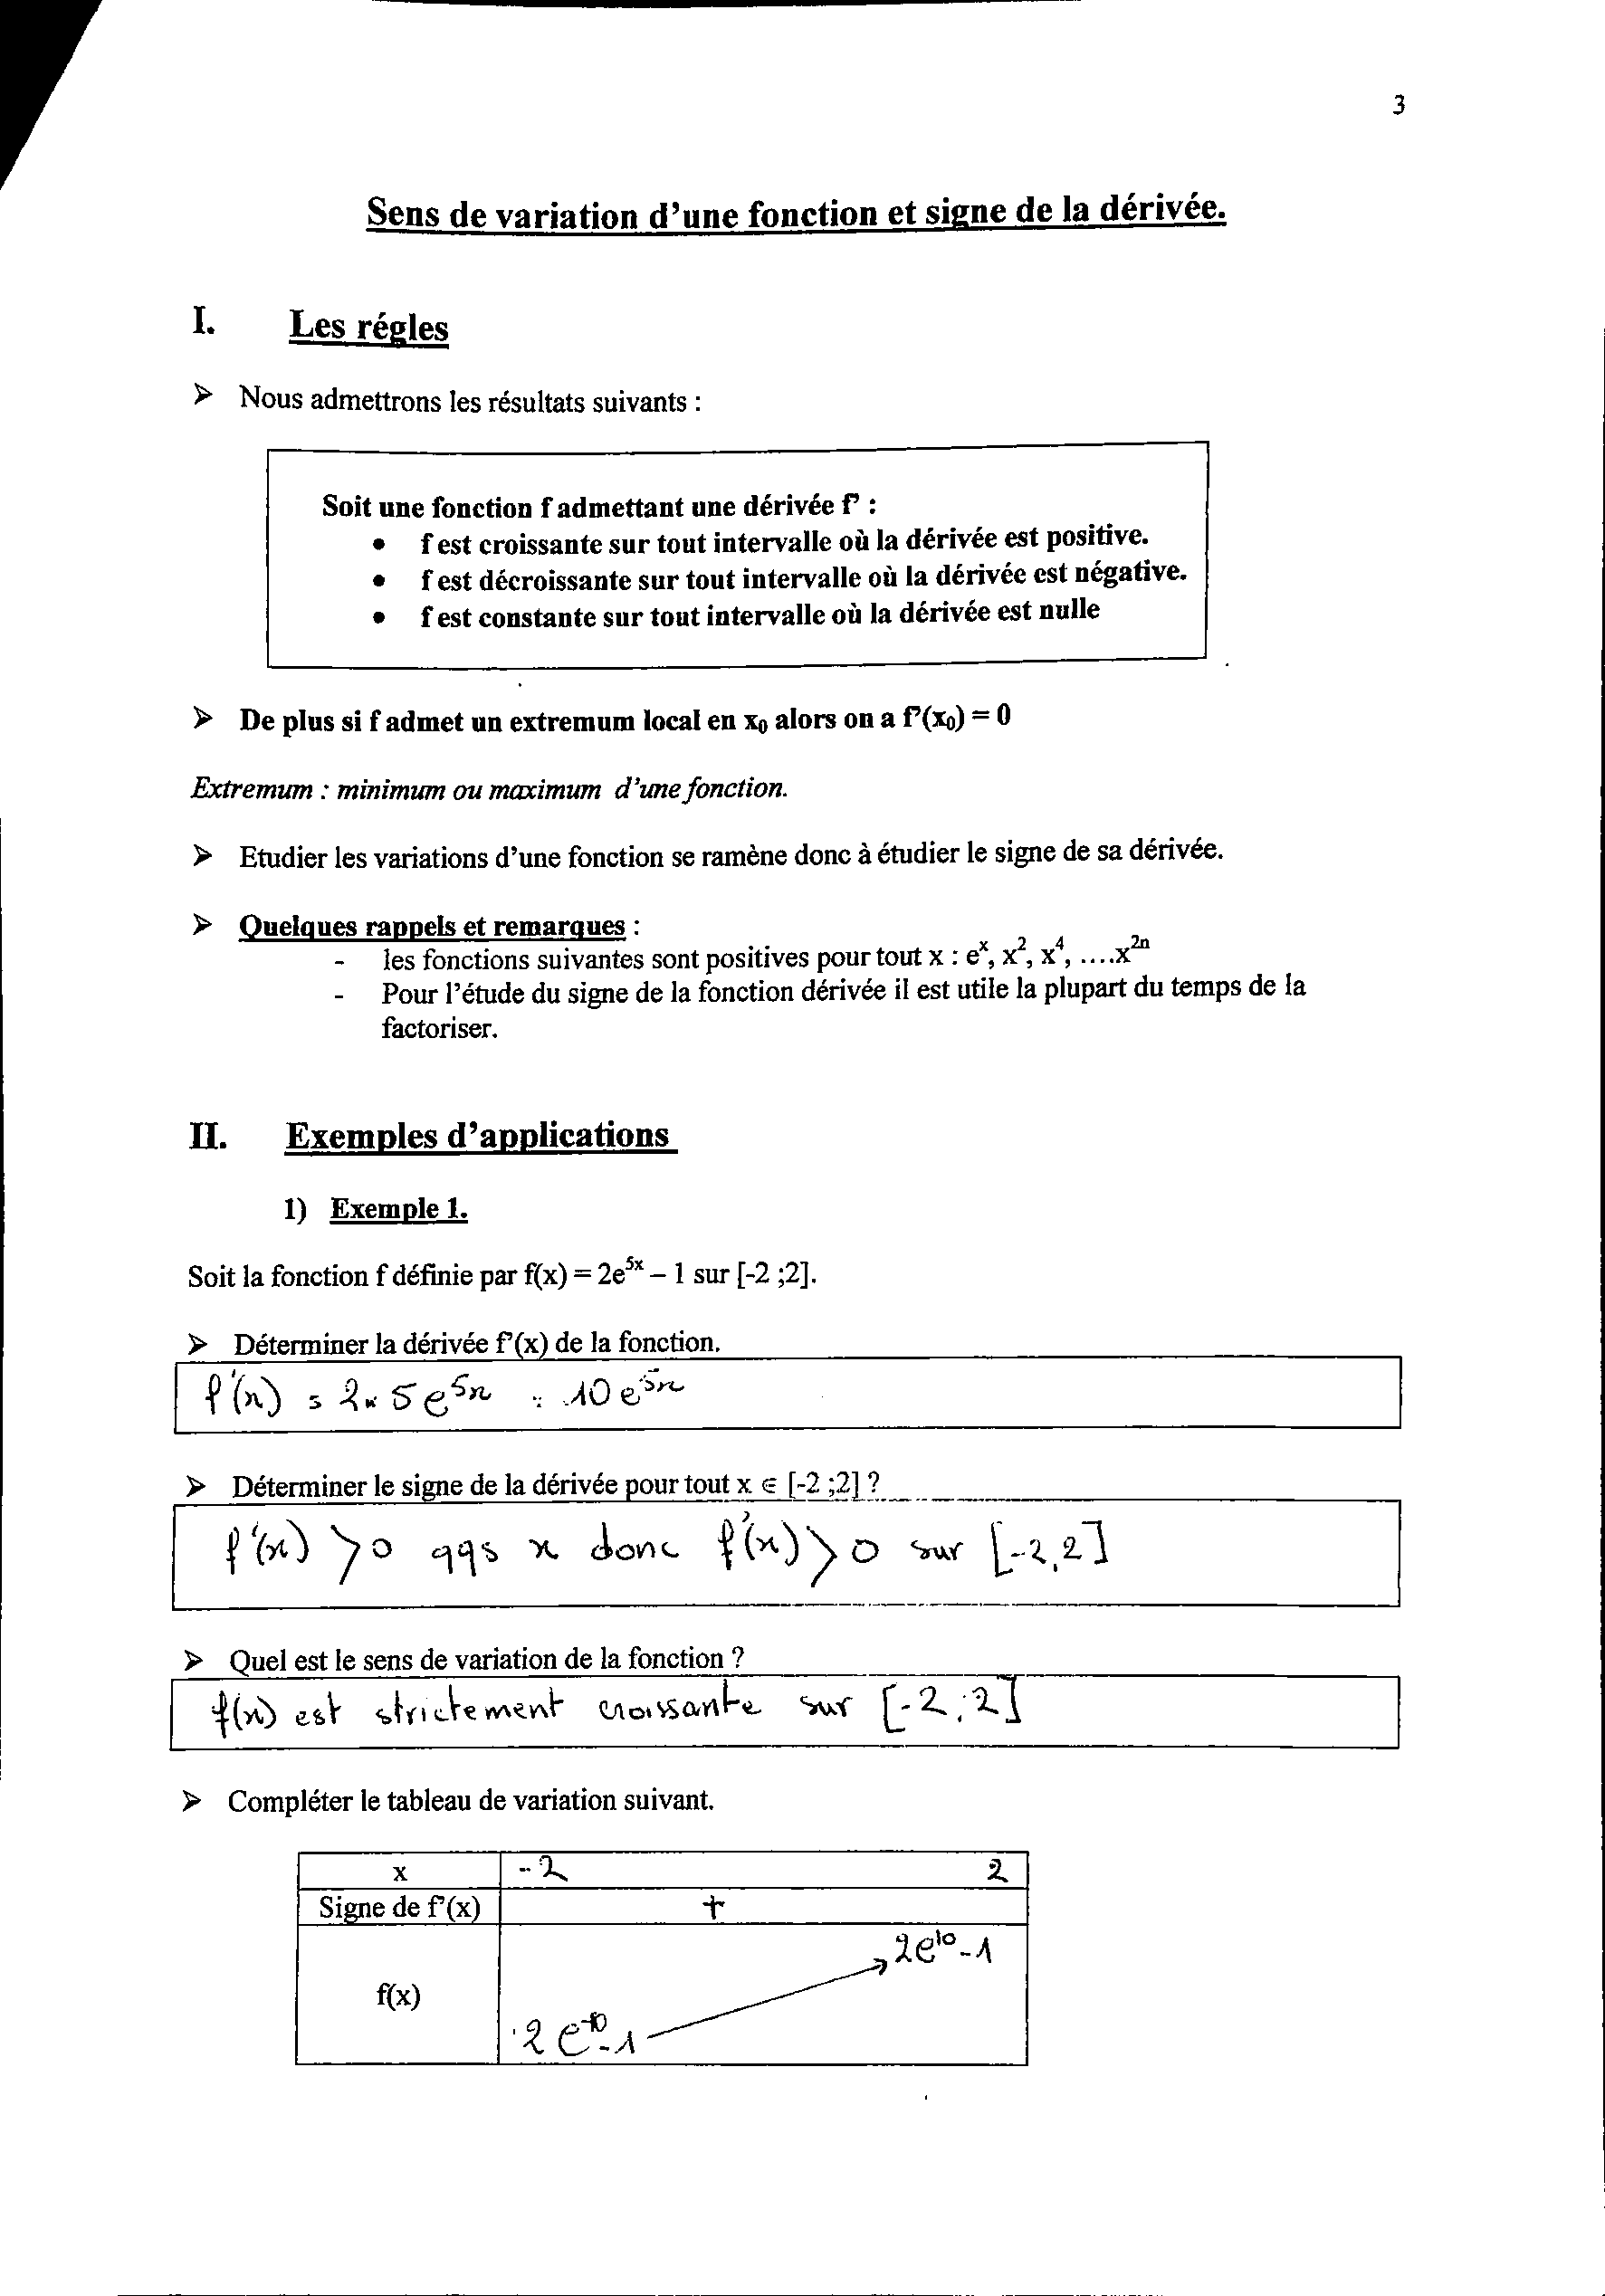 3
Sens de variation d’une fonction et signe de la dérivée.
I. Les régles
➢ Nous admettrons les résultats suivants :
Soit une fonction f admettant une dérivée f’ :
• f est croissante sur tout intervalle où la dérivée est positive.
• f est décroissante sur tout intervalle où la dérivée est négative.
• f est constante sur tout intervalle où la dérivée est nulle
➢ De plus si f admet un extremum local en x₀ alors on a f’(x₀) = 0
Extremum : minimum ou maximum d’une fonction.
➢ Etudier les variations d’une fonction se ramène donc à étudier le signe de sa dérivée.
➢ Quelques rappels et remarques :
- les fonctions suivantes sont positives pour tout x : eˣ, x², x⁴, ….x²ⁿ
- Pour l’étude du signe de la fonction dérivée il est utile la plupart du temps de la
factoriser.
II. Exemples d’applications
1) Exemple 1.
Soit la fonction f définie par f(x) = 2e⁵ˣ – 1 sur [-2 ;2].
➢ Déterminer la dérivée f’(x) de la fonction.
f'(x) = 2 x 5 e⁵ˣ = 10 e⁵ˣ
➢ Déterminer le signe de la dérivée pour tout x ∈ [-2 ;2] ?
f'(x) > 0 qqs x donc f'(x) > 0 sur [-2,2]
➢ Quel est le sens de variation de la fonction ?
f(x) est strictement croissante sur [-2 ; 2]
➢ Compléter le tableau de variation suivant.
x -2 2
Signe de f’(x) +
2e¹⁰ - 1
f(x)
2 e⁻¹⁰ - 1